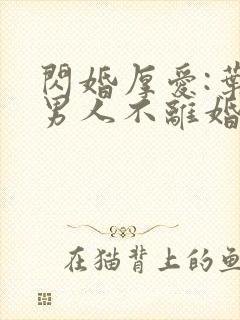 閃婚厚愛:葉
男人不離婚
在猫背上的鱼